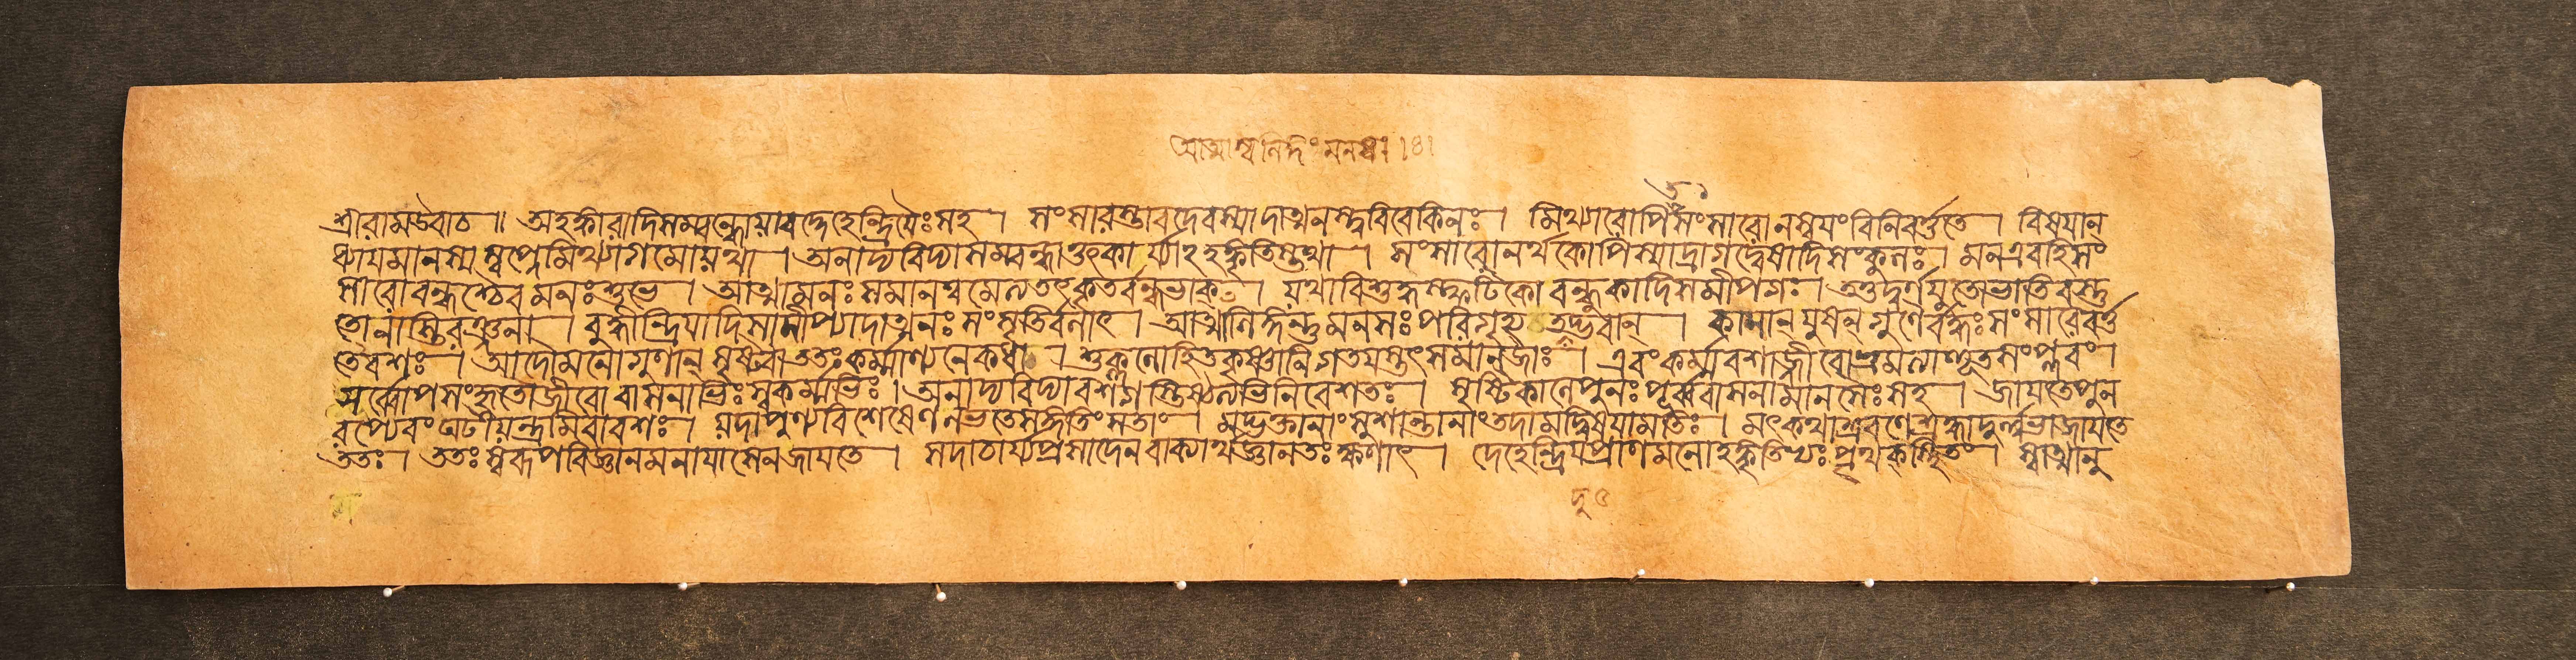 শ্রীরামউবাচ॥ অহঙ্কারাদিসম্বন্ধোয়াবদ্দেহেন্দ্রিয়ৈঃসহ। সংসারস্তাবদেবস্যাদাত্মনস্ত্ববিবেকিনঃ। মিথ্যারোপিতসংসারোনস্বয়ংবিনিবর্ত্ততে। বিষয়ান
ধ্যায়মানস্যস্বপ্নেমিথ্যাগমোয়থা। অনাদ্যবিদ্যাসম্বন্ধাত্তৎকার্য্যাহঙ্কৃতিস্তথা। সংসারোনর্থকোপিস্যাদ্রাগদ্বেষাদিসংকুলঃ। মনএবহিসং
সারোবন্ধশ্চৈবমনঃশুভে। আত্মামনঃসমানত্বমেত্যতৎকৃতবন্ধভাক্। য়থাবিশুদ্ধস্ফটিকোবন্ধুকাদিসমীপগঃ। তত্তদ্বর্ণয়ুতোভাতিবস্তু
তোনাস্তিরঞ্জনা। বুদ্ধীন্দ্রিয়াদিসামীপ্যাদাত্মনঃসংসৃতির্বলাৎ। পরিগৃহ্যতদুদ্ভবান্। গুণৈর্বদ্ধঃসংসারেবর্ত্ত
তেবশঃ। আদৌমনোগুণান্সৃষ্ট্বাততঃকর্ম্মাণ্যনেকধা। শুক্ললোহিতকৃষ্ণানিগতয়স্তৎসমানজাঃ। এবংকর্ম্মবশাজ্জীবোভ্রমত্যাভূতসংপ্লবং।
সর্ব্বোপসংহৃতৌজীবোবাসনাভিঃস্বকর্ম্মভিঃ। অনাদ্যবিদ্যাবশগস্তিষ্ঠত্যভিনিবেশতঃ। সৃষ্টিকালেপুনঃপূর্ব্ববাসনামানসৈঃসহ। জায়তেপুন
রপ্যেবংঘটীয়ন্ত্রমিবাবশঃ। য়দাপুণ্যবিশেষেণলভতেসঙ্গতিংসতাং। মদ্ভক্তানাংসুশান্তানাংতদামদ্বিষয়ামতিঃ। মৎকথাশ্রবণেশ্রদ্ধাদুর্ল্লভাজায়তে
ততঃ। ততঃস্বরূপবিজ্ঞানমনায়াসেনজায়তে। সদাচার্য্যপ্রসাদেনবাক্যার্থজ্ঞানতঃক্ষণাৎ। দেহেন্দ্রিয়প্রাণমনোহঙ্কৃতিভ্যঃপৃথক্স্থিতং। স্বাত্মানু